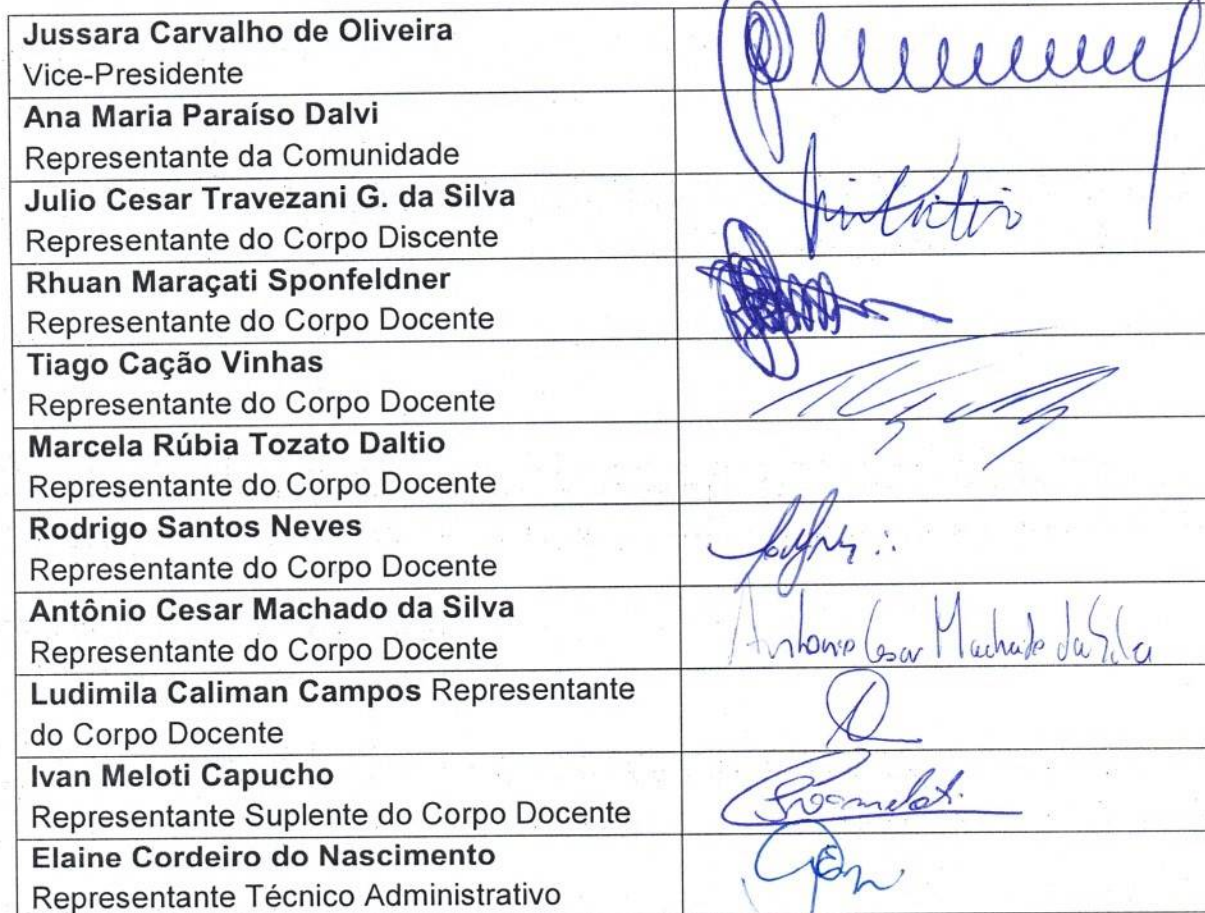 Jussara Carvalho de Oliveira
Vice-Presidente
Ana Maria Paraíso Dalvi
Representante da Comunidade
Julio Cesar Travezani G. da Silva
Representante do Corpo Discente
Rhuan Maraçati Sponfeldner
Representante do Corpo Docente
Tiago Cação Vinhas
Representante do Corpo Docente
Marcela Rúbia Tozato Daltio
Representante do Corpo Docente
Rodrigo Santos Neves
Representante do Corpo Docente
Antônio Cesar Machado da Silva
Representante do Corpo Docente
Antonio Cesar Machado da Silva
Ludimila Caliman Campos Representante
do Corpo Docente
Ivan Meloti Capucho
Representante Suplente do Corpo Docente
Elaine Cordeiro do Nascimento
Representante Técnico Administrativo